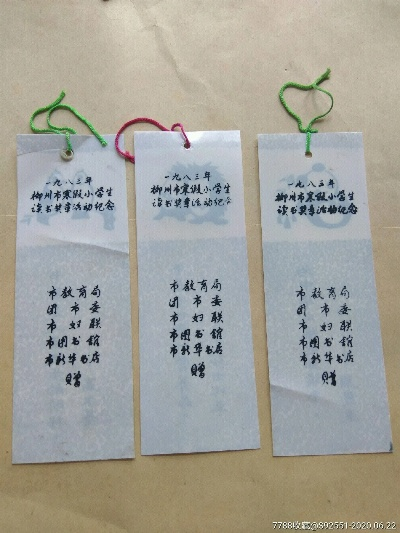 一九八三年
柳州市寒假小学生
读书奖章活动纪念
市教育局
团市委
市妇联
市图书馆
市新华书店
赠
一九八三年
柳州市寒假小学生
读书奖章活动纪念
市教育局
团市委
市妇联
市图书馆
市新华书店
赠
一九八三年
柳州市寒假小学生
读书奖章活动纪念
市教育局
团市委
市妇联
市图书馆
市新华书店
赠
7788收藏@892551-2020.06.22